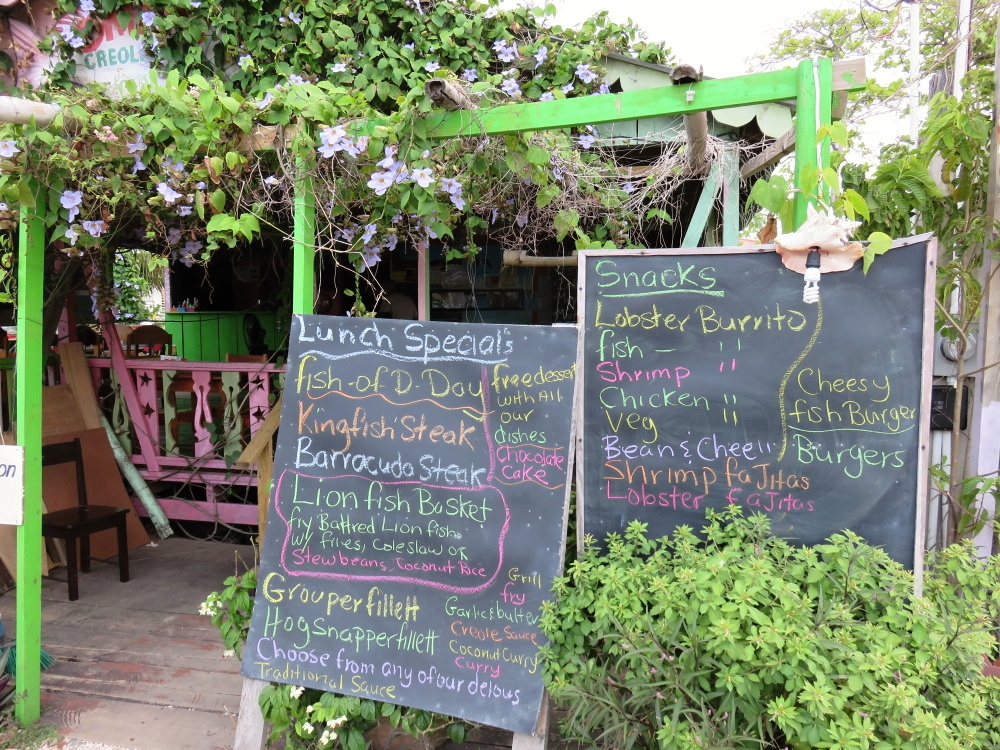 CREOLE
on
Lunch Specials
fish-of-D-Day
Kingfish Steak
Barracuda Steak
free dessert
with All
our
dishes
Chocolate
Cake
Lion fish Basket
fry Battred Lion fish
w/ fries, Coleslaw or
Stew beans, Coconut Rice
Grouper fillett
Hogsnapper fillett
Choose from any of our delous
Traditional Sauce
Grill
fry
Garlic & butter
Creole Sauce
Coconut Curry
Curry
Snacks
Lobster Burrito
fish - "
Shrimp "
Chicken "
Veg "
Bean & Chee "
Shrimp faJitas
Lobster faJitas
Cheesy
fish Burger
Burgers